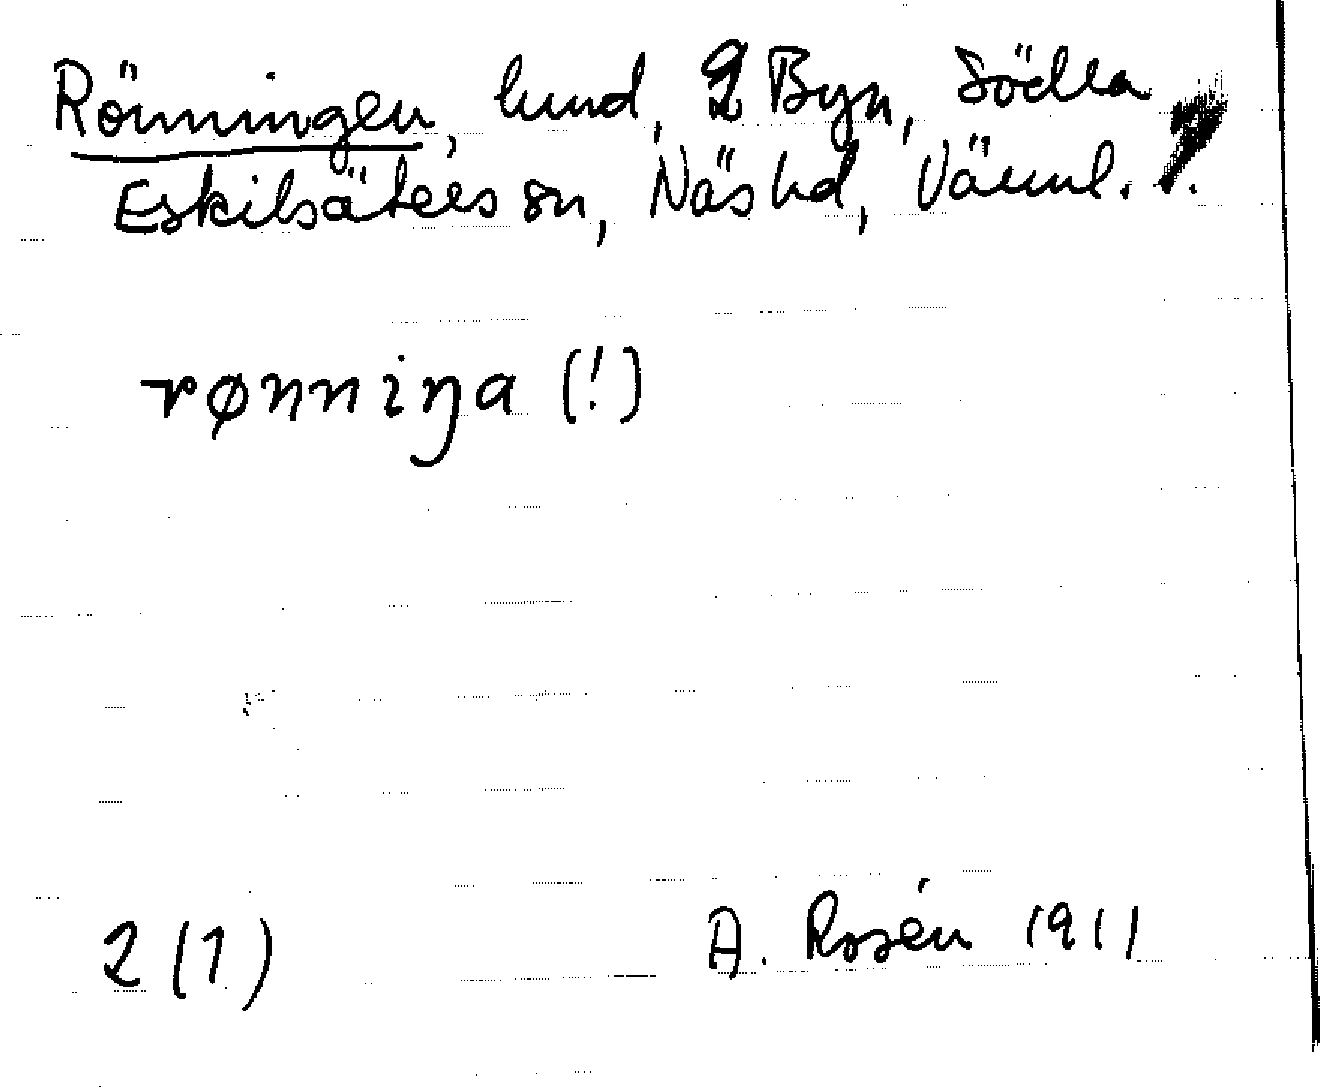 Rönningen, lund, 2 Byn, Södra
Eskilsäters sn, Näs hd, Värml.
rønniŋa (!)
2 (1) A. Rosén 1911